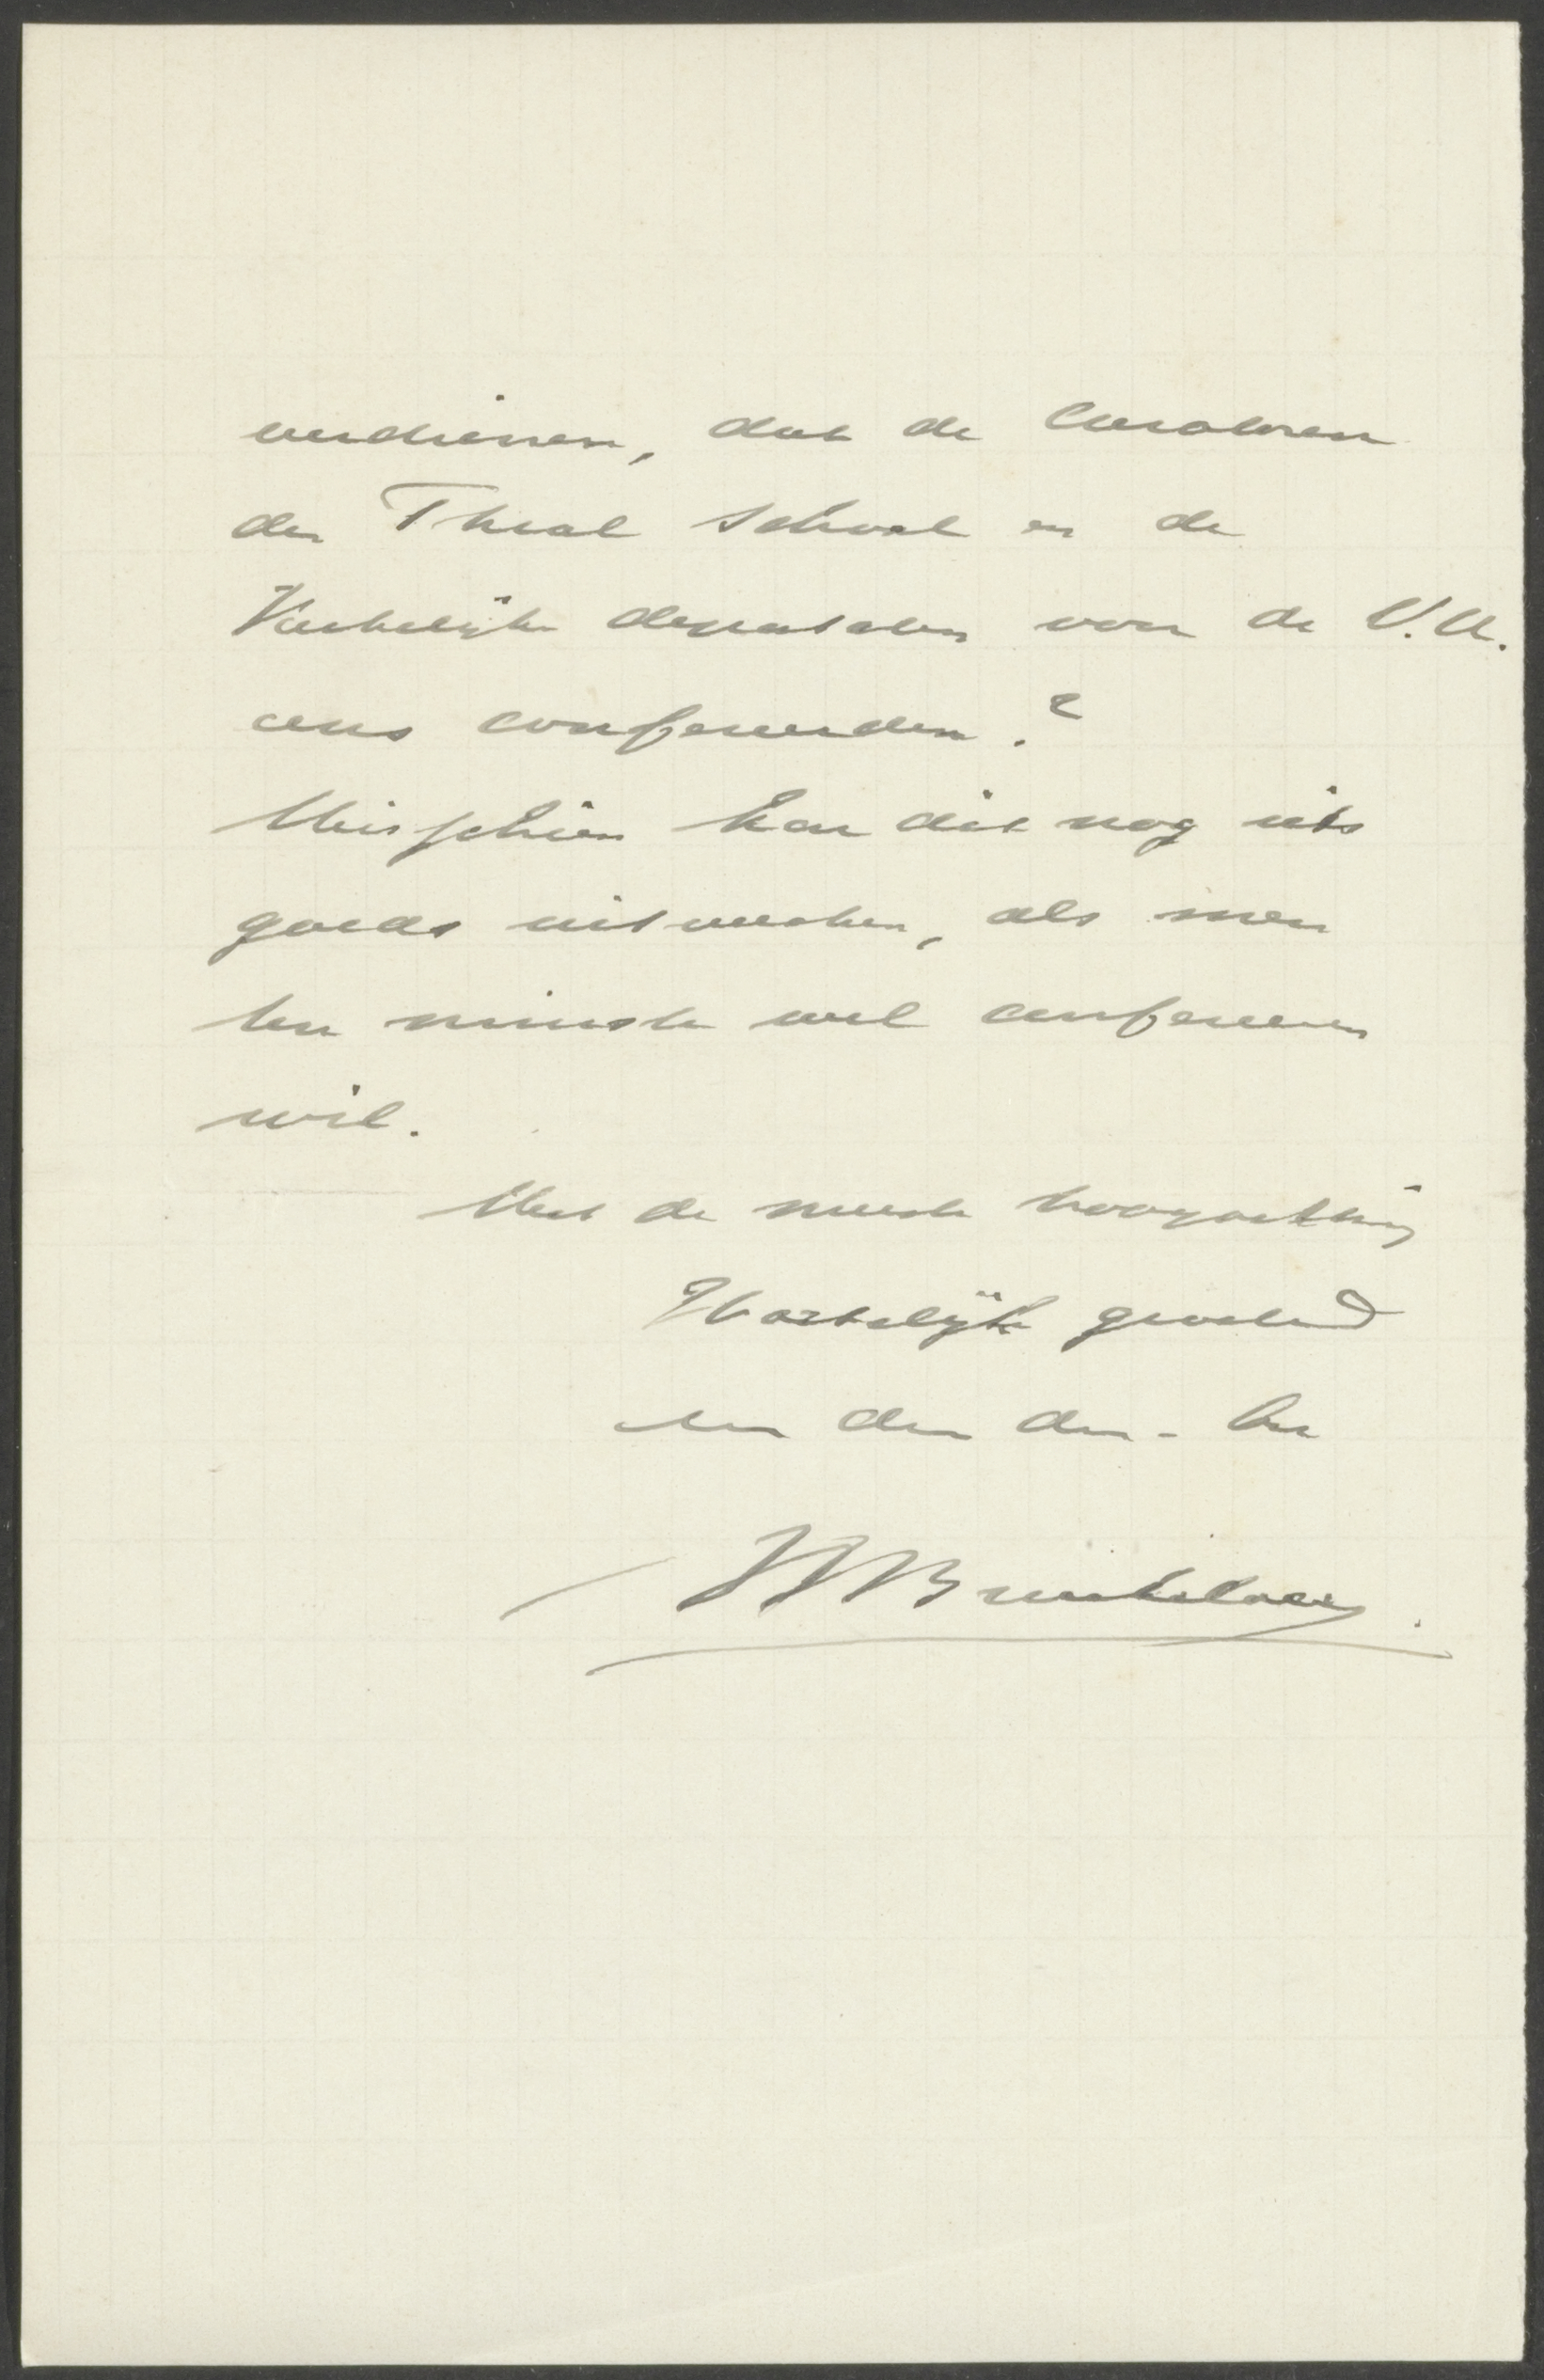 verdienen, dat de Curatoren
der Theol School en de
Kerkelijke deputaten van de V.U.
eens confereerden?
Misschien kan dit nog iets
goeds uitwerken, als men
ten minste wel confereeren
wil.
Met de meeste hoogachting
Hartelijk gegroet